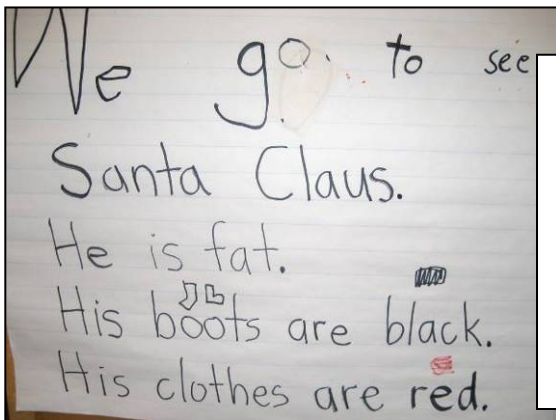 We go to see
Santa Claus.
He is fat.
His boots are black.
His clothes are red.